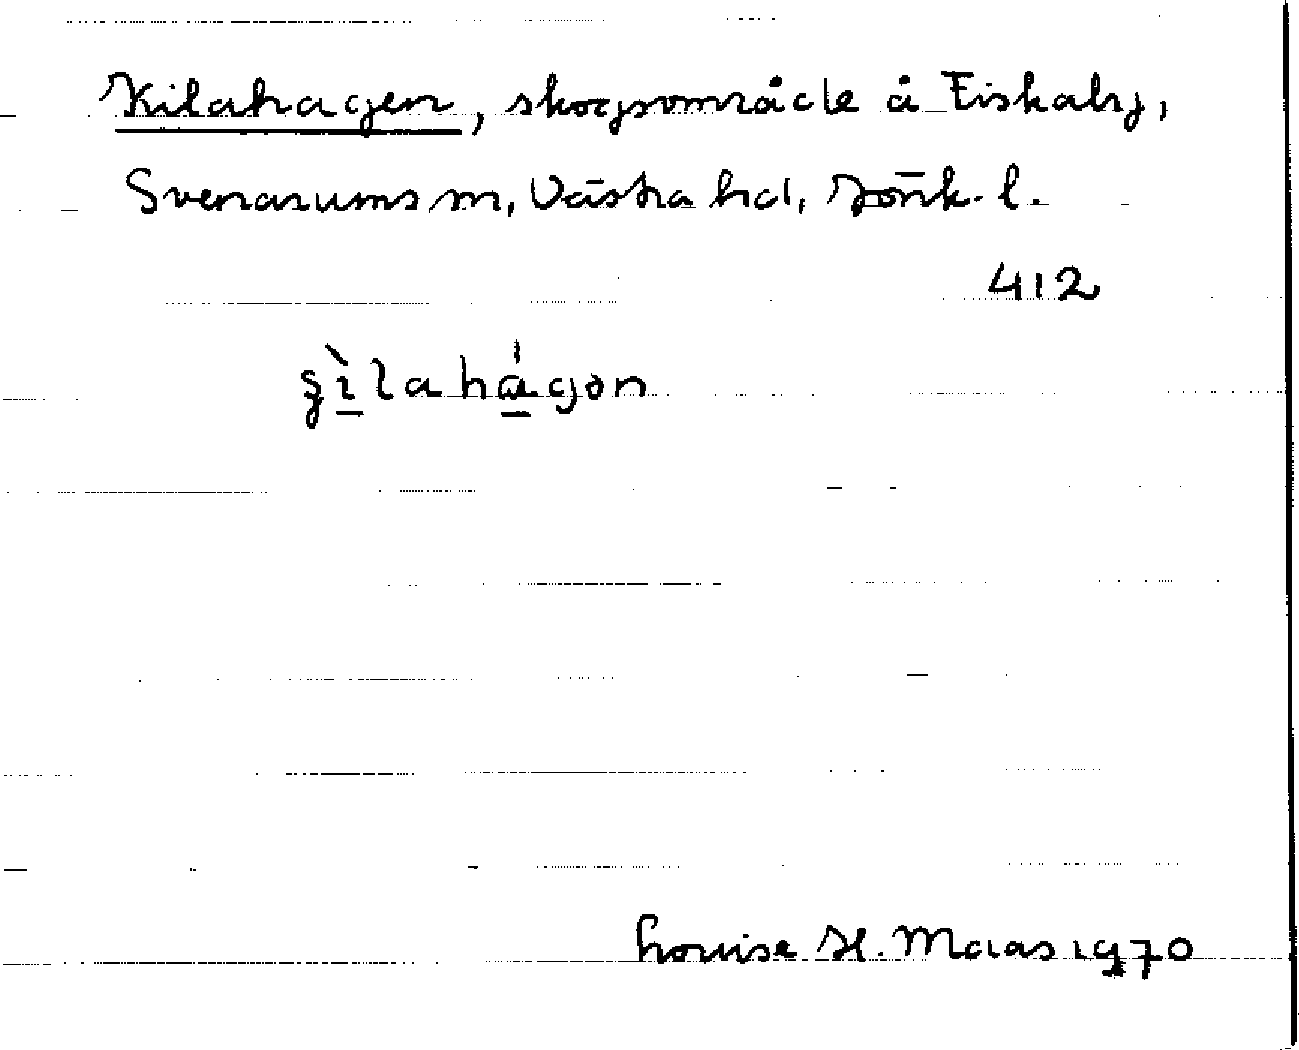 Kilahagen, skogsområde å Fiskaby,
Svenarums sn, Västra hd, Jönk. l.
412
ʂìlahágən
Louise H. Maas 1970